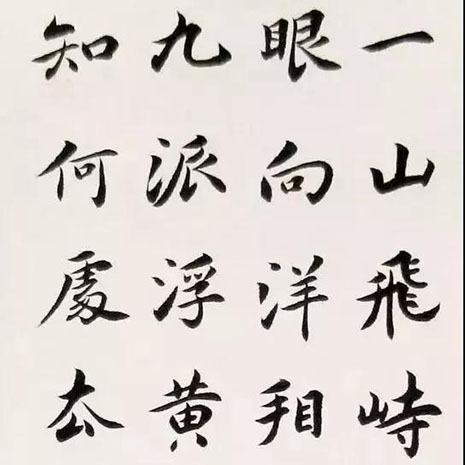 一山飛峙
眼向洋看
九派浮黄
知何處去